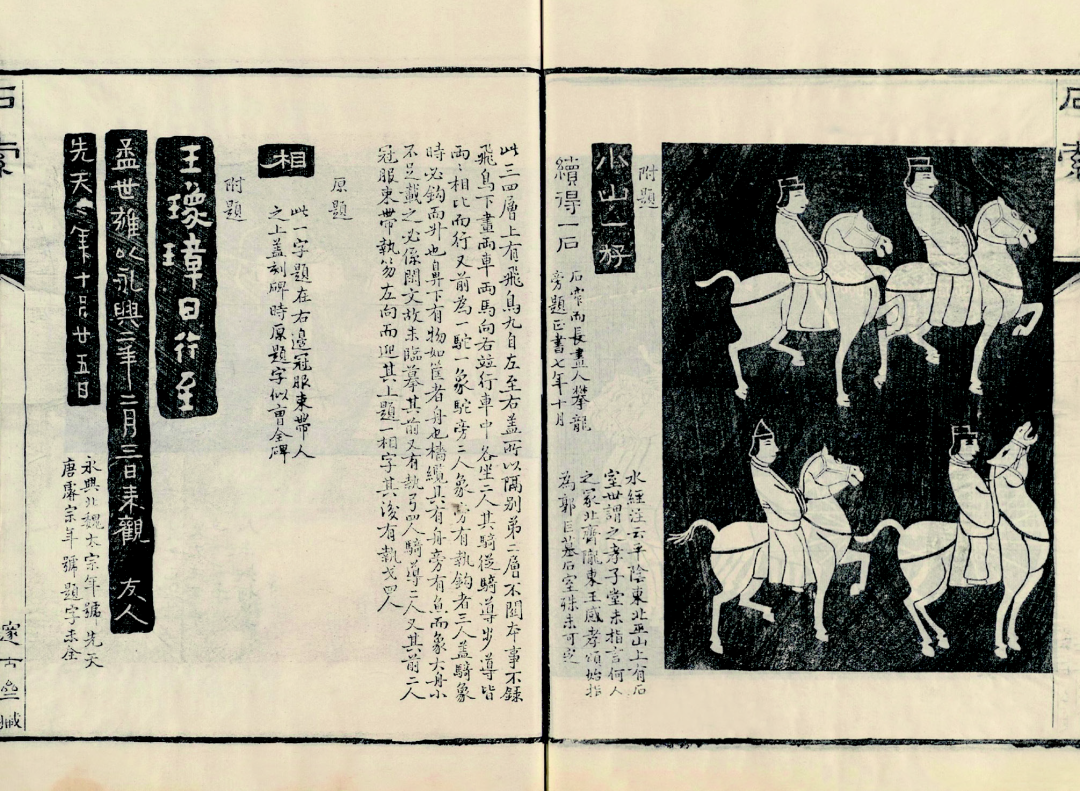 石索
附題
小山一好
續得一石
石常而長畫人攀龍
旁題正書七年十月
水經注云平陰東北巫山上有石
室世謂之孝子堂未指言何人
之冢北齊隴東王感孝頌始指
為郭巨墓石室殊未可定
此三四層上有飛鳥九自左至右蓋所以隔別弟二層不關本事不錄
飛鳥下畫兩車兩馬向右竝行車中各坐二人其騎從騎導步導皆
兩兩相比而行又前為一駝一象駝旁二人象旁有執鉤者三人蓋騎象
時必鉤而升也鼻下有物如筐者舟也檣纜具有舟旁有魚而象大舟小
不足載之必係闕文故未臨摹其前又有執弓四人騎導二人又其前二人
冠服束帶執笏左向而迎其上題一相字其後有執戈四人
原題
相
此一字題在右邊冠服束帶人
之上蓋刻碑時原題字似曹全碑
附題
王瑑璋日行至
孟世雍以永興二年二月三日來觀 友人
先天二年十月廿五日
永興北魏太宗年號先天
唐睿宗年號題字未全
石索
邃古
臧